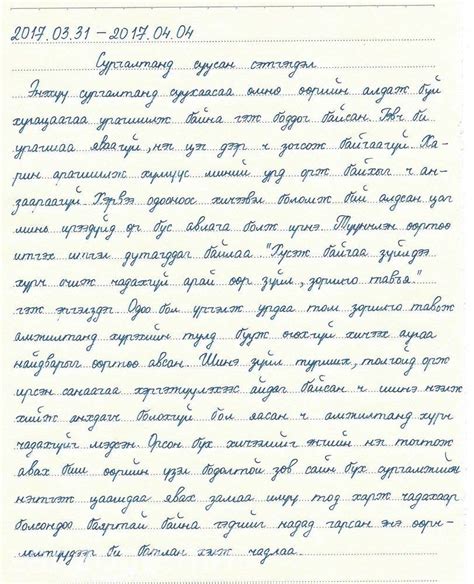 2017.03.31 – 2017.04.04
Сургалтанд суусан сэтгэгдэл
Энэхүү сургалтанд суухаасаа өмнө өөрийн алдаж буй
хугацаагаа урагшилж байна гэж боддог байсан. Гэвч би
урагшаа яваагүй, нэг цэг дээр ч зогсож байгаагүй. Ха-
рин арагшилж хүмүүс миний урд орж байхыг ч ан-
заараагүй. Хэрвээ одооноос хичээвэл боломж бий алдсан цаг
минь ирээдүйд өр бус авлага болж ирнэ. Түүнчлэн өөртөө
итгэх итгэл дутагддаг байлаа. "Хүсэж байгаа зүйлдээ
хүрч очиж чадахгүй арай өөр зүйл, зорилго тавъя"
гэж эргэлздэг. Одоо бол үргэлж урдаа том зорилго тавьж
амжилтанд хүргэхийн тулд бууж өгөхгүй хичээх амлаа
найдварыг өөртөө авсан. Шинэ зүйл турших, толгойд орж
ирсэн санаагаа хэрэгжүүлэхээс айдаг байсан ч шинэ нээлт
хийж анхдагч болохгүй бол яасан ч амжилтанд хүрч
чадахгүйг мэдсэн. Орсон бүх хичээлийг энгийн нэг тогтож
авах биш өөрийн үзэл бодолтой зөв сайн бүх сургамжийг
нэгтгэж цаашдаа явах замаа илүү тод харж чадахаар
болсондоо баяртай байна гэдгийг надад гарсан энэ өөрч-
лөлтүүдээр би батлан хэлж чадлаа.